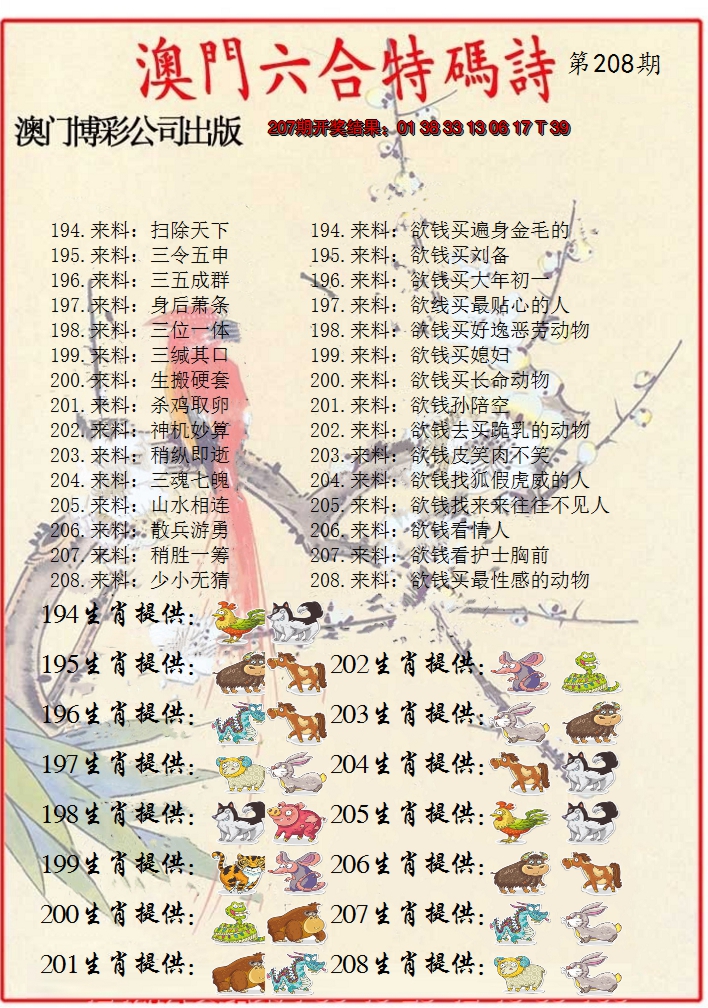 澳門六合特碼詩 第208期
澳门博彩公司出版 207期开奖结果：01 36 33 13 06 17 T 39
194.来料：扫除天下 194.来料：欲钱买遍身金毛的
195.来料：三令五申 195.来料：欲钱买刘备
196.来料：三五成群 196.来料：欲钱买大年初一
197.来料：身后萧条 197.来料：欲线买最贴心的人
198.来料：三位一体 198.来料：欲钱买好逸恶劳动物
199.来料：三缄其口 199.来料：欲钱买媳妇
200.来料：生搬硬套 200.来料：欲钱买长命动物
201.来料：杀鸡取卵 201.来料：欲钱孙陪空
202.来料：神机妙算 202.来料：欲钱去买跪乳的动物
203.来料：稍纵即逝 203.来料：欲钱皮笑肉不笑
204.来料：三魂七魄 204.来料：欲钱找狐假虎威的人
205.来料：山水相连 205.来料：欲钱找来来往往不见人
206.来料：散兵游勇 206.来料：欲钱看情人
207.来料：稍胜一筹 207.来料：欲钱看护士胸前
208.来料：少小无猜 208.来料：欲钱买最性感的动物
194生肖提供：
195生肖提供： 202生肖提供：
196生肖提供： 203生肖提供：
197生肖提供： 204生肖提供：
198生肖提供： 205生肖提供：
199生肖提供： 206生肖提供：
200生肖提供： 207生肖提供：
201生肖提供： 208生肖提供：